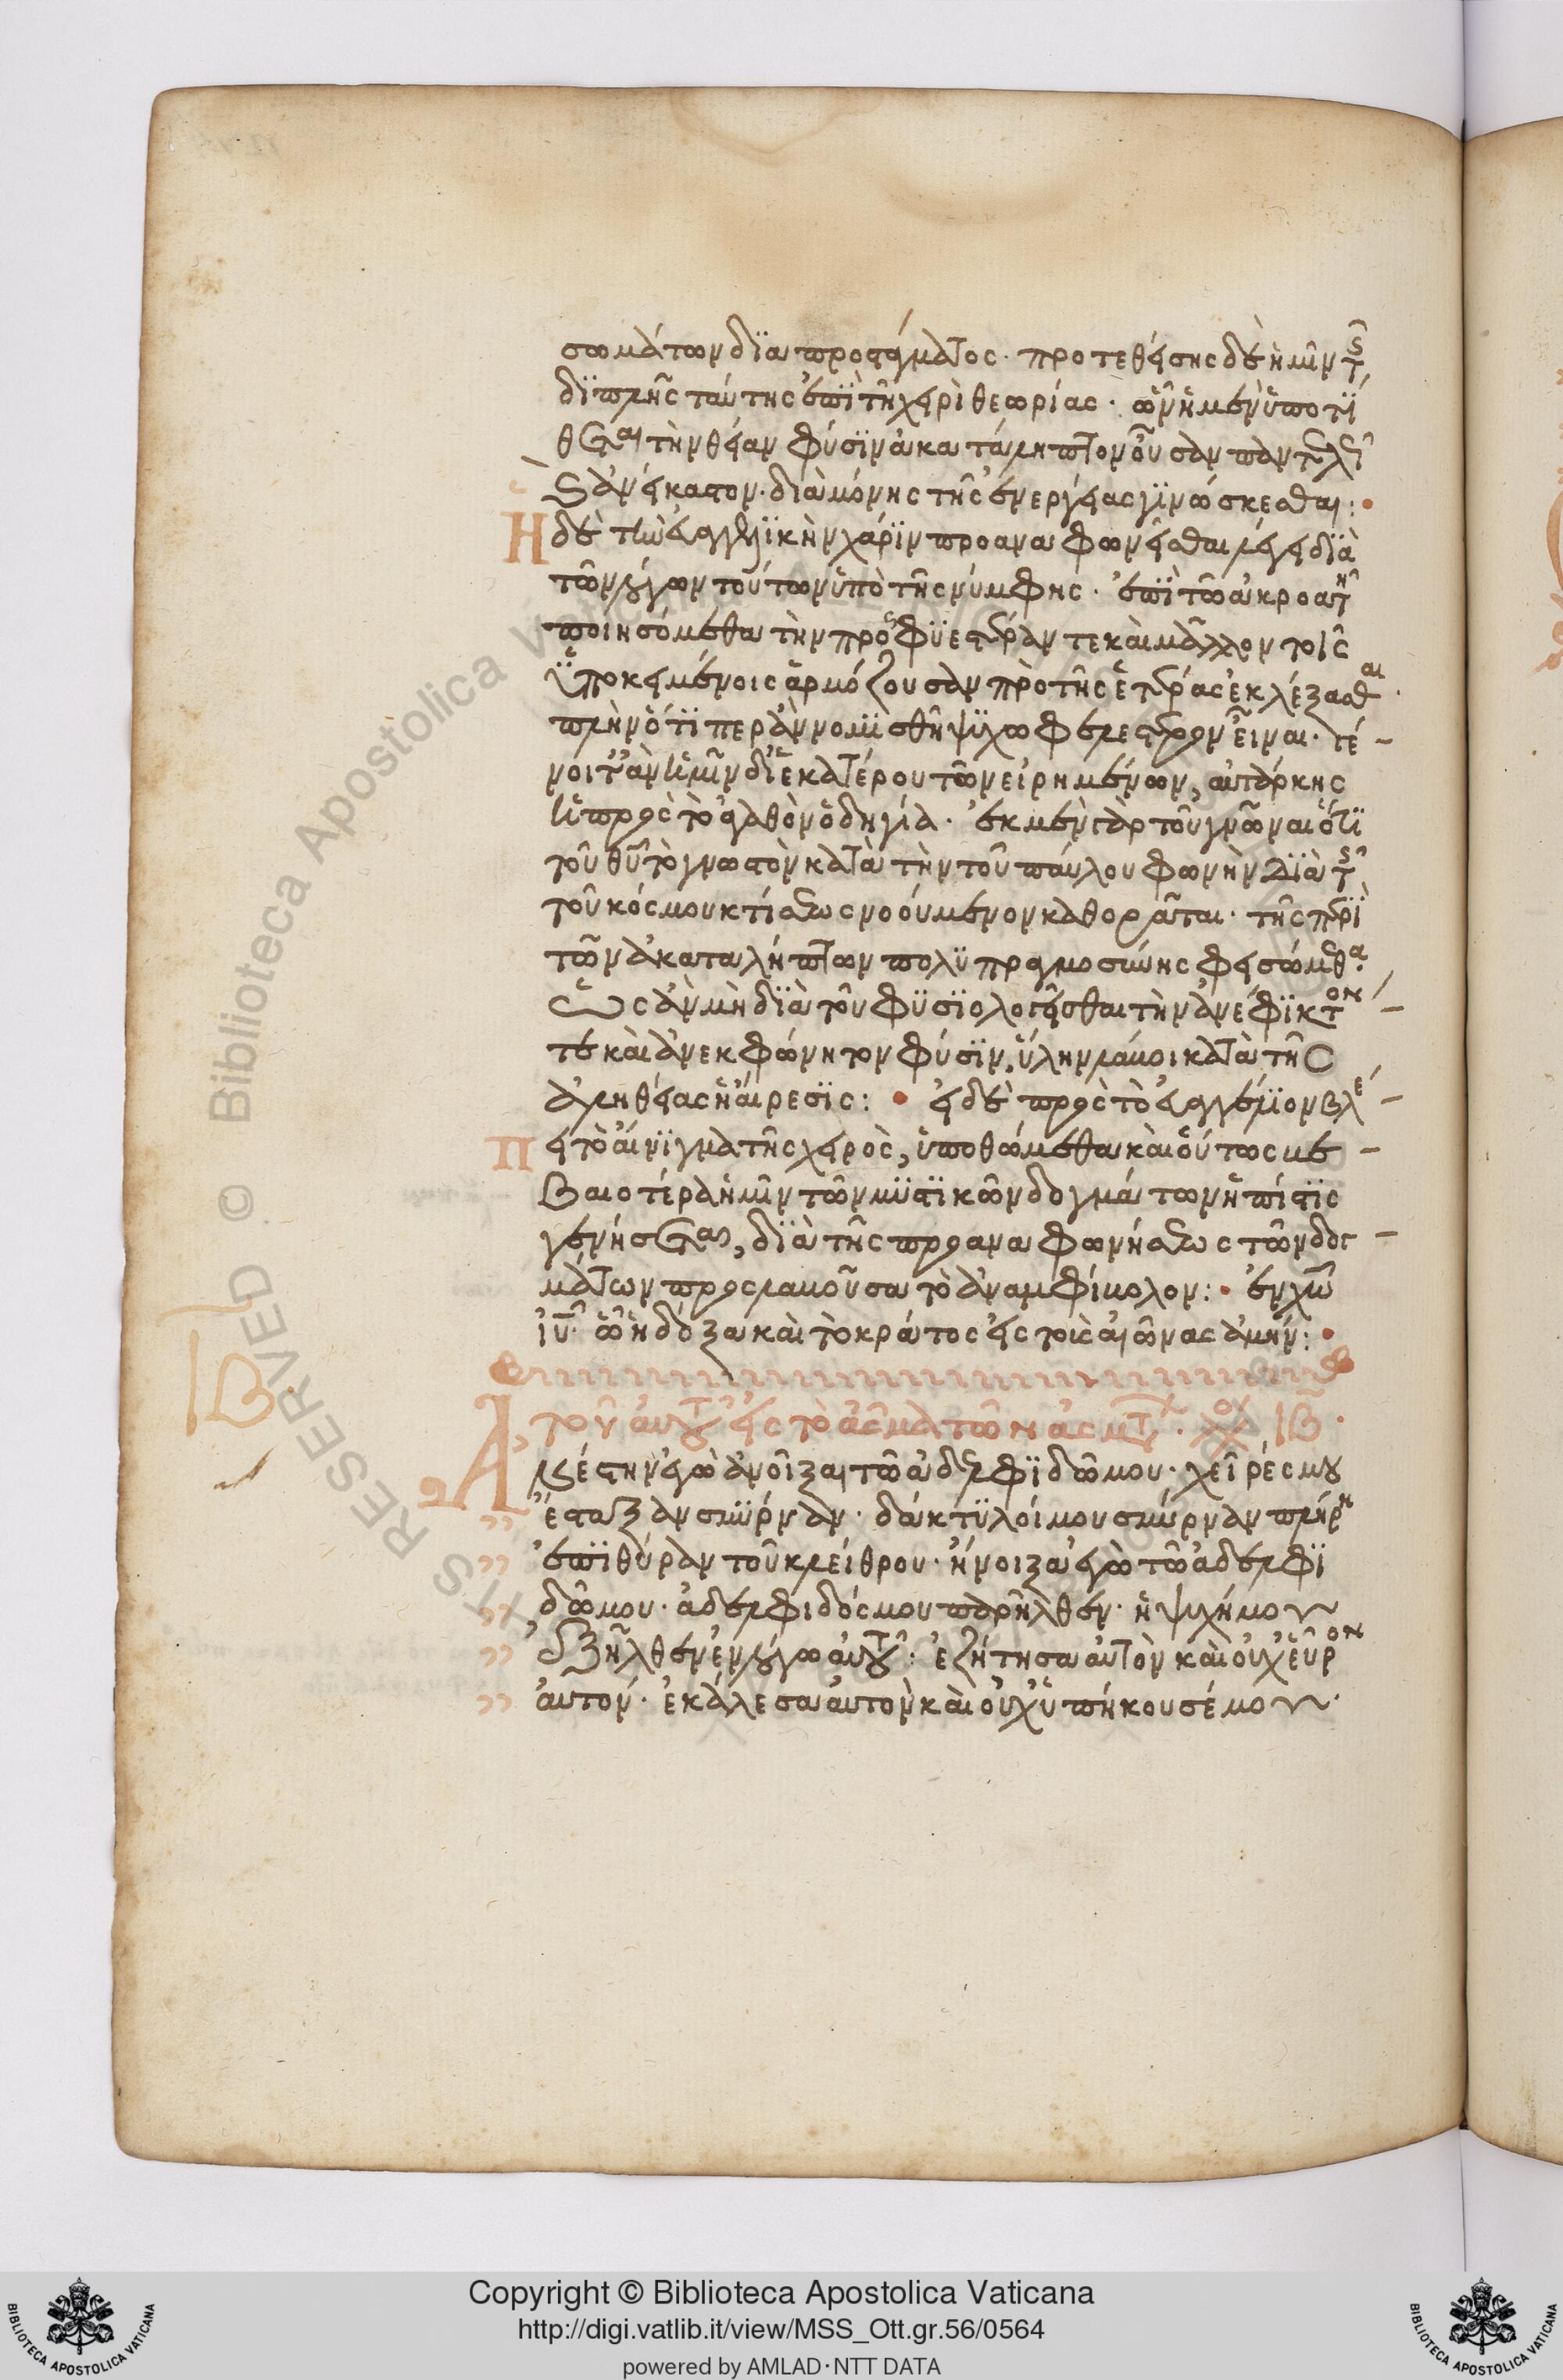 σωμάτων δια προστάγματος· προτεθείσης δὲ ἡμῖν τῆς
διπλῆς ταύτης ἐπὶ τῇ χειρὶ θεωρίας· ὧν ἡ μὲν ὑποτί
θεται τὴν θείαν φύσιν ἀκατάληπτον οὖσαν παντελῶς
καὶ ἀνείκαστον· διὰ μόνης τῆς ἐνεργείας γινώσκεσθαι:
Ἡ δὲ τὴν εὐαγγελικὴν χάριν προαναφωνεῖσθαι λέγει διὰ
τῶν λόγων τούτων ὑπὸ τῆς νύμφης· ἐπὶ τῷ ἀκροατῇ
ποιησόμεθα τὴν προσφυεστέραν τε καὶ μᾶλλον τοῖς
ὑποκειμένοις ἁρμόζουσαν πρὸ τῆς ἑτέρας ἐκλέξασθαι
πλὴν ὅτι περ ἂν νομισθῇ ψυχωφελέστερον εἶναι· γέ
νοιτ' ἂν ἡμῖν δι' ἑκατέρου τῶν εἰρημένων, αὐτάρκης
ἡ πρὸς τὸ ἀγαθὸν ὁδηγία· ἐκ μὲν γὰρ τοῦ γνῶναι ὅτι
τοῦ θυ τὸ γνωστὸν κατὰ τὴν τοῦ παύλου φωνὴν διὰ τῆς
τοῦ κόσμου κτίσεως νοούμενον καθορᾶται· τῆς περὶ
τῶν ἀκαταλήπτων πολυπραγμοσύνης φεισώμεθα·
Ὡς ἂν μὴ διὰ τοῦ φυσιολογεῖσθαι τὴν ἀνέφικτον
τε καὶ ἀνεκφώνητον φύσιν, ὕλην λάβοι κατὰ τῆς
ἀληθείας ἡ αἵρεσις: εἰ δὲ πρὸς τὸ εὐαγγέλιον βλέ
ποι τὸ αἴνιγμα τῆς χειρὸς, ὑποθώμεθα καὶ οὕτως βε
βαιοτέρα ἡμῖν τῶν μυστικῶν δογμάτων ἡ πίστις
γενήσεται, διὰ τῆς προαναφωνήσεως τῶν δογ
μάτων προσλαβοῦσα τὸ ἀναμφίβολον: ἐν χω
ιυ· ᾧ ἡ δόξα καὶ τὸ κράτος εἰς τοὺς αἰῶνας ἀμήν:
ΙΒ
τοῦ αὐτοῦ εἰς τὸ ἆσμα τῶν ἀσμάτων· λόγος ΙΒ·
Ἀνέστην ἐγὼ ἀνοῖξαι τῷ ἀδελφιδῷ μου· χεῖρές μου
ἔσταξαν σμύρναν· δάκτυλοί μου σμύρναν πλήρη
ἐπὶ θύραν τοῦ κλείθρου· ἤνοιξα ἐγὼ τῷ ἀδελφι
δῷ μου· ἀδελφιδός μου παρῆλθεν· ἡ ψυχή μου
ἐξῆλθεν ἐν λόγῳ αὐτοῦ: ἐζήτησα αὐτὸν καὶ οὐχ εὗρον
αὐτόν· ἐκάλεσα αὐτὸν καὶ οὐχ ὑπήκουσέ μου·
Copyright © Biblioteca Apostolica Vaticana
http://digi.vatlib.it/view/MSS_Ott.gr.56/0564
powered by AMLAD·NTT DATA